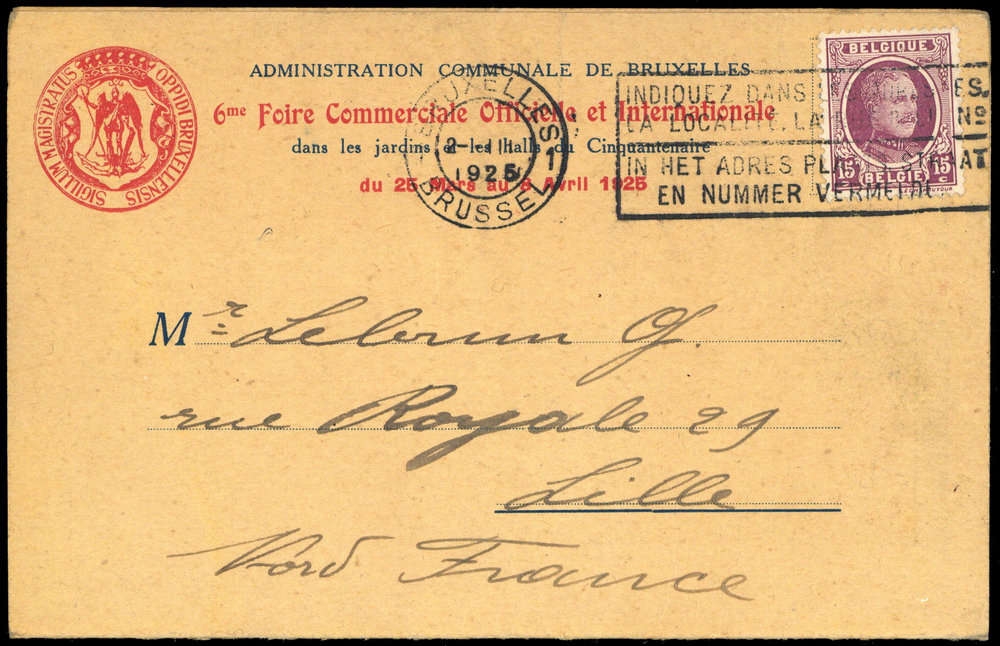 SIGILLUM MAGISTRATUS OPPIDI BRUXELLENSIS
ADMINISTRATION COMMUNALE DE BRUXELLES
6me Foire Commerciale Officielle et Internationale
dans les jardins et les Halls du Cinquantenaire
du 25 Mars au 8 Avril 1925
BRUXELLES 1
2- III
1925
BRUSSEL
INDIQUEZ DANS
LA LOCALITE, LA No
IN HET ADRES PLAATS STRAAT
EN NUMMER VERMELDEN
BELGIQUE
15 c 15 c
BELGIË
Mr Lebrun G.
rue Royale 29
Lille
Nord France